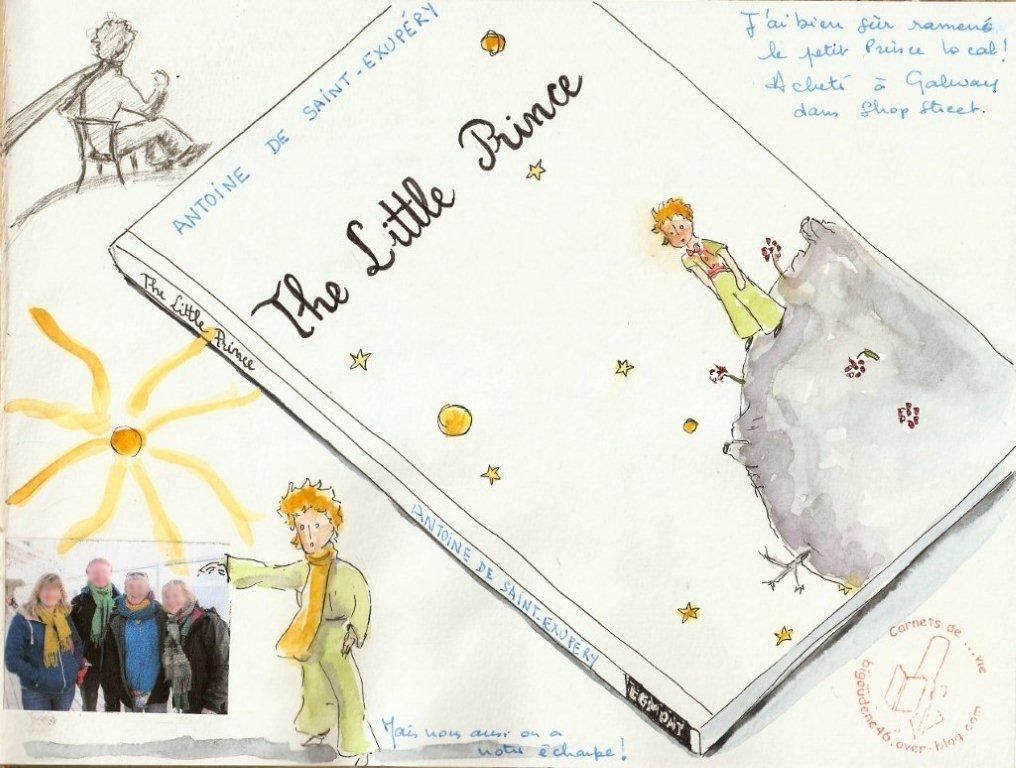 J'ai bien sûr ramené
le petit Prince local!
Acheté à Galway
dans Shop Street.
ANTOINE DE SAINT-EXUPÉRY
The Little Prince
The Little Prince
ANTOINE DE SAINT-EXUPÉRY
EGMONT
Mais nous aussi on a
notre écharpe!
Carnets de....vie
bigoudene46.over-blog.com